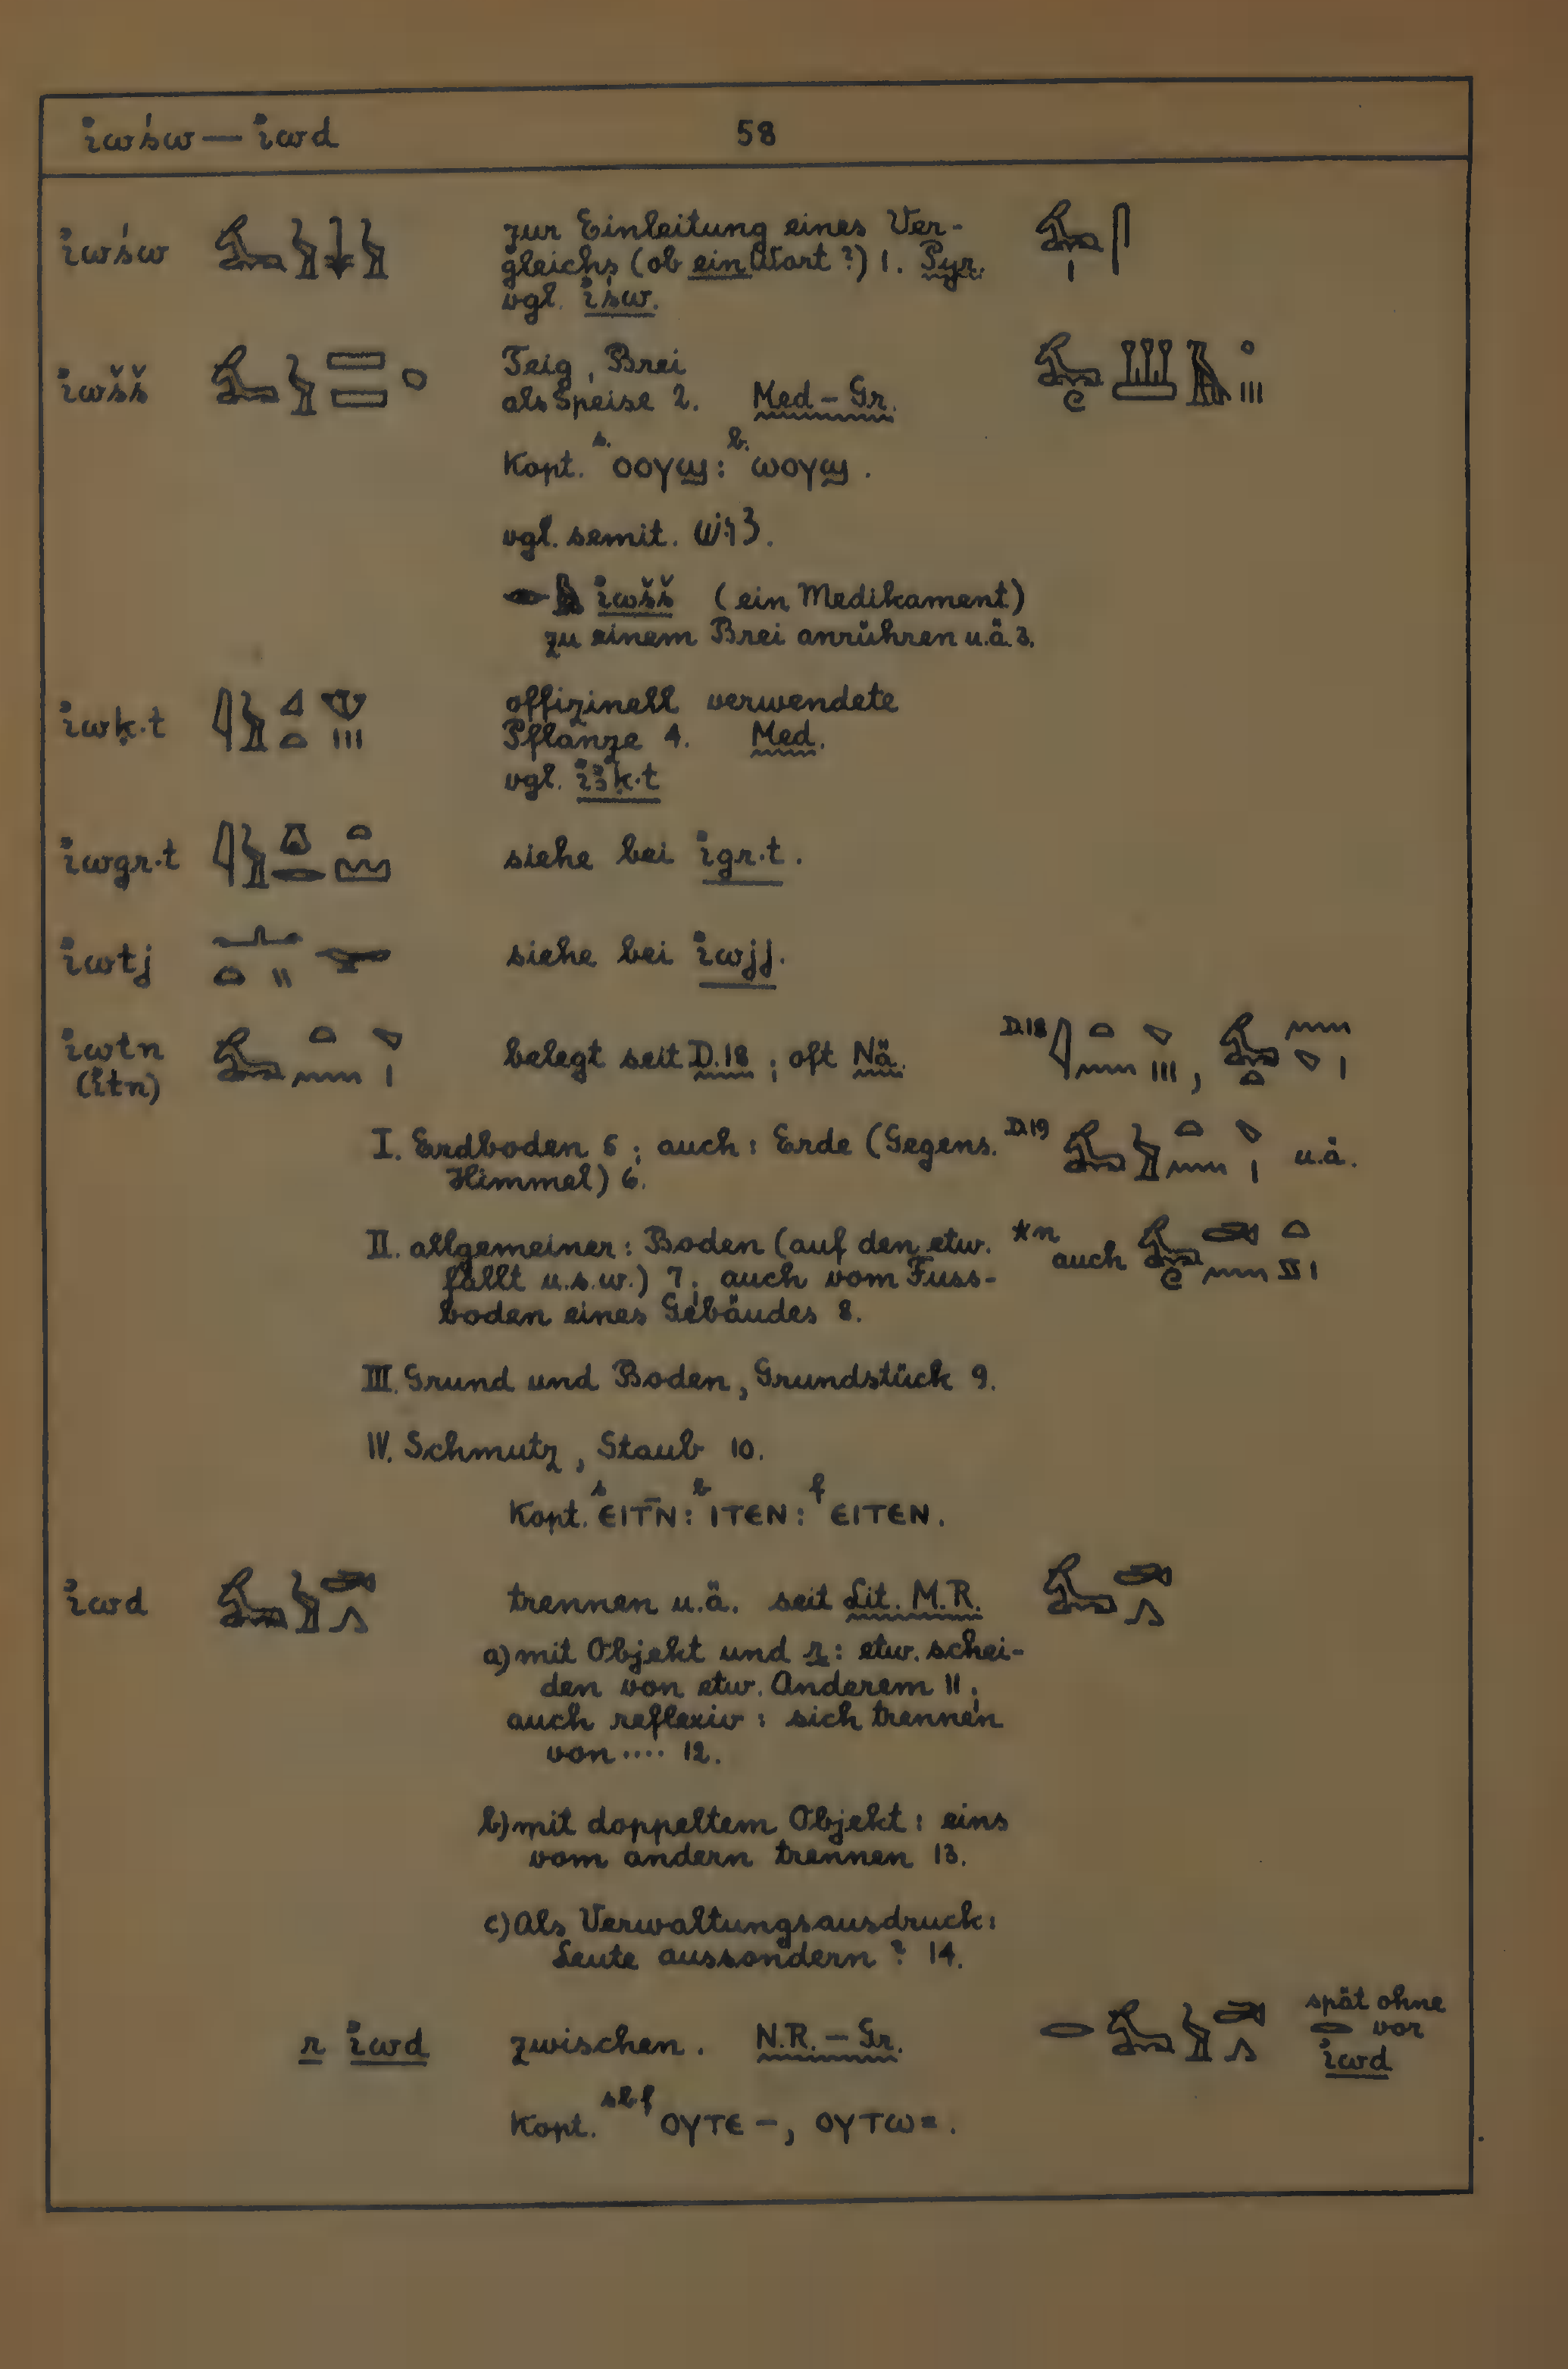 iwśw — iwd 58
iwśw zur Einleitung eines Ver-
gleichs (ob ein Wort?) 1. Pyr.
vgl. iśw.
iwšš Teig, Brei
als Speise 2. Med – Gr.
Kopt. s. ooyϣ: b. ωoyϣ.
vgl. semit.
iwšš (ein Medikament)
zu einem Brei anrühren u.ä. 3.
iwḳ·t offizinell verwendete
Pflanze 4. Med.
vgl. iꜣḳ·t
iwgr·t siehe bei igr·t.
iwtj siehe bei iwjj.
iwtn belegt seit D.18; oft Nä. D.18 ,
(itn)
I. Erdboden 5; auch: Erde (Gegens. D.19 u.ä.
Himmel) 6.
II. allgemeiner: Boden (auf den etw. *n auch
fällt u.s.w.) 7; auch vom Fuss-
boden eines Gebäudes 8.
III. Grund und Boden, Grundstück 9.
IV. Schmutz, Staub 10.
Kopt. s ЄITN̄: b ITЄN: f ЄITЄN.
iwd trennen u.ä. seit Lit. M.R.
a) mit Objekt und r: etw. schei-
den von etw. Anderem 11;
auch reflexiv: sich trennen
von .... 12.
b) mit doppeltem Objekt: eins
vom andern trennen 13.
c) Als Verwaltungsausdruck:
Leute aussondern? 14.
r iwd zwischen. N.R. – Gr. spät ohne
vor
iwd
Kopt. sbf OYTЄ –, OYTω=.